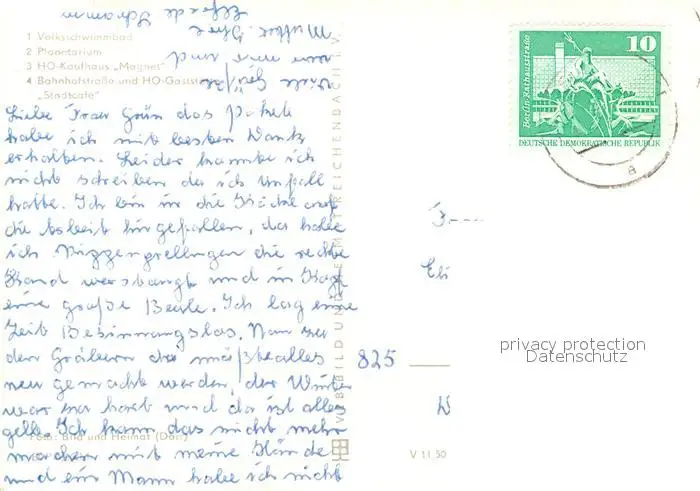 1 Volksschwimmbad
2 Planetarium
3 HO-Kaufhaus „Magnet"
4 Bahnhofstraße und HO-Gaststätte
„Stadtcafé"
Liebe Frau Grün das Paket
habe ich mit besten Dank
erhalten. Leider kannte ich
nicht schreiben da ich Unfall
hatte. Ich bin in die Küche auf
die hingefallen, da habe
ich die rechte
Hand und in Kopf
eine große Beule. Ich lag eine
Zeit Besinnungslos. Nun zu
den Gräbern die müßte alles
neu gemacht werden, der Winter
war zu hart und da ist alles
gelb. Ich kann das nicht mehr
machen mit meine Hände
und ein Mann habe ich nicht
viele Grüße
von mir und
Mutter. Ihre
Elfriede
Foto: Bild und Heimat (Darr)
VEB BILD UND HEIMAT REICHENBACH I. V.
V 11 50
10
Berlin, Rathausstraße
DEUTSCHE DEMOKRATISCHE REPUBLIK
a
F
Eli
825
W
privacy protection
Datenschutz